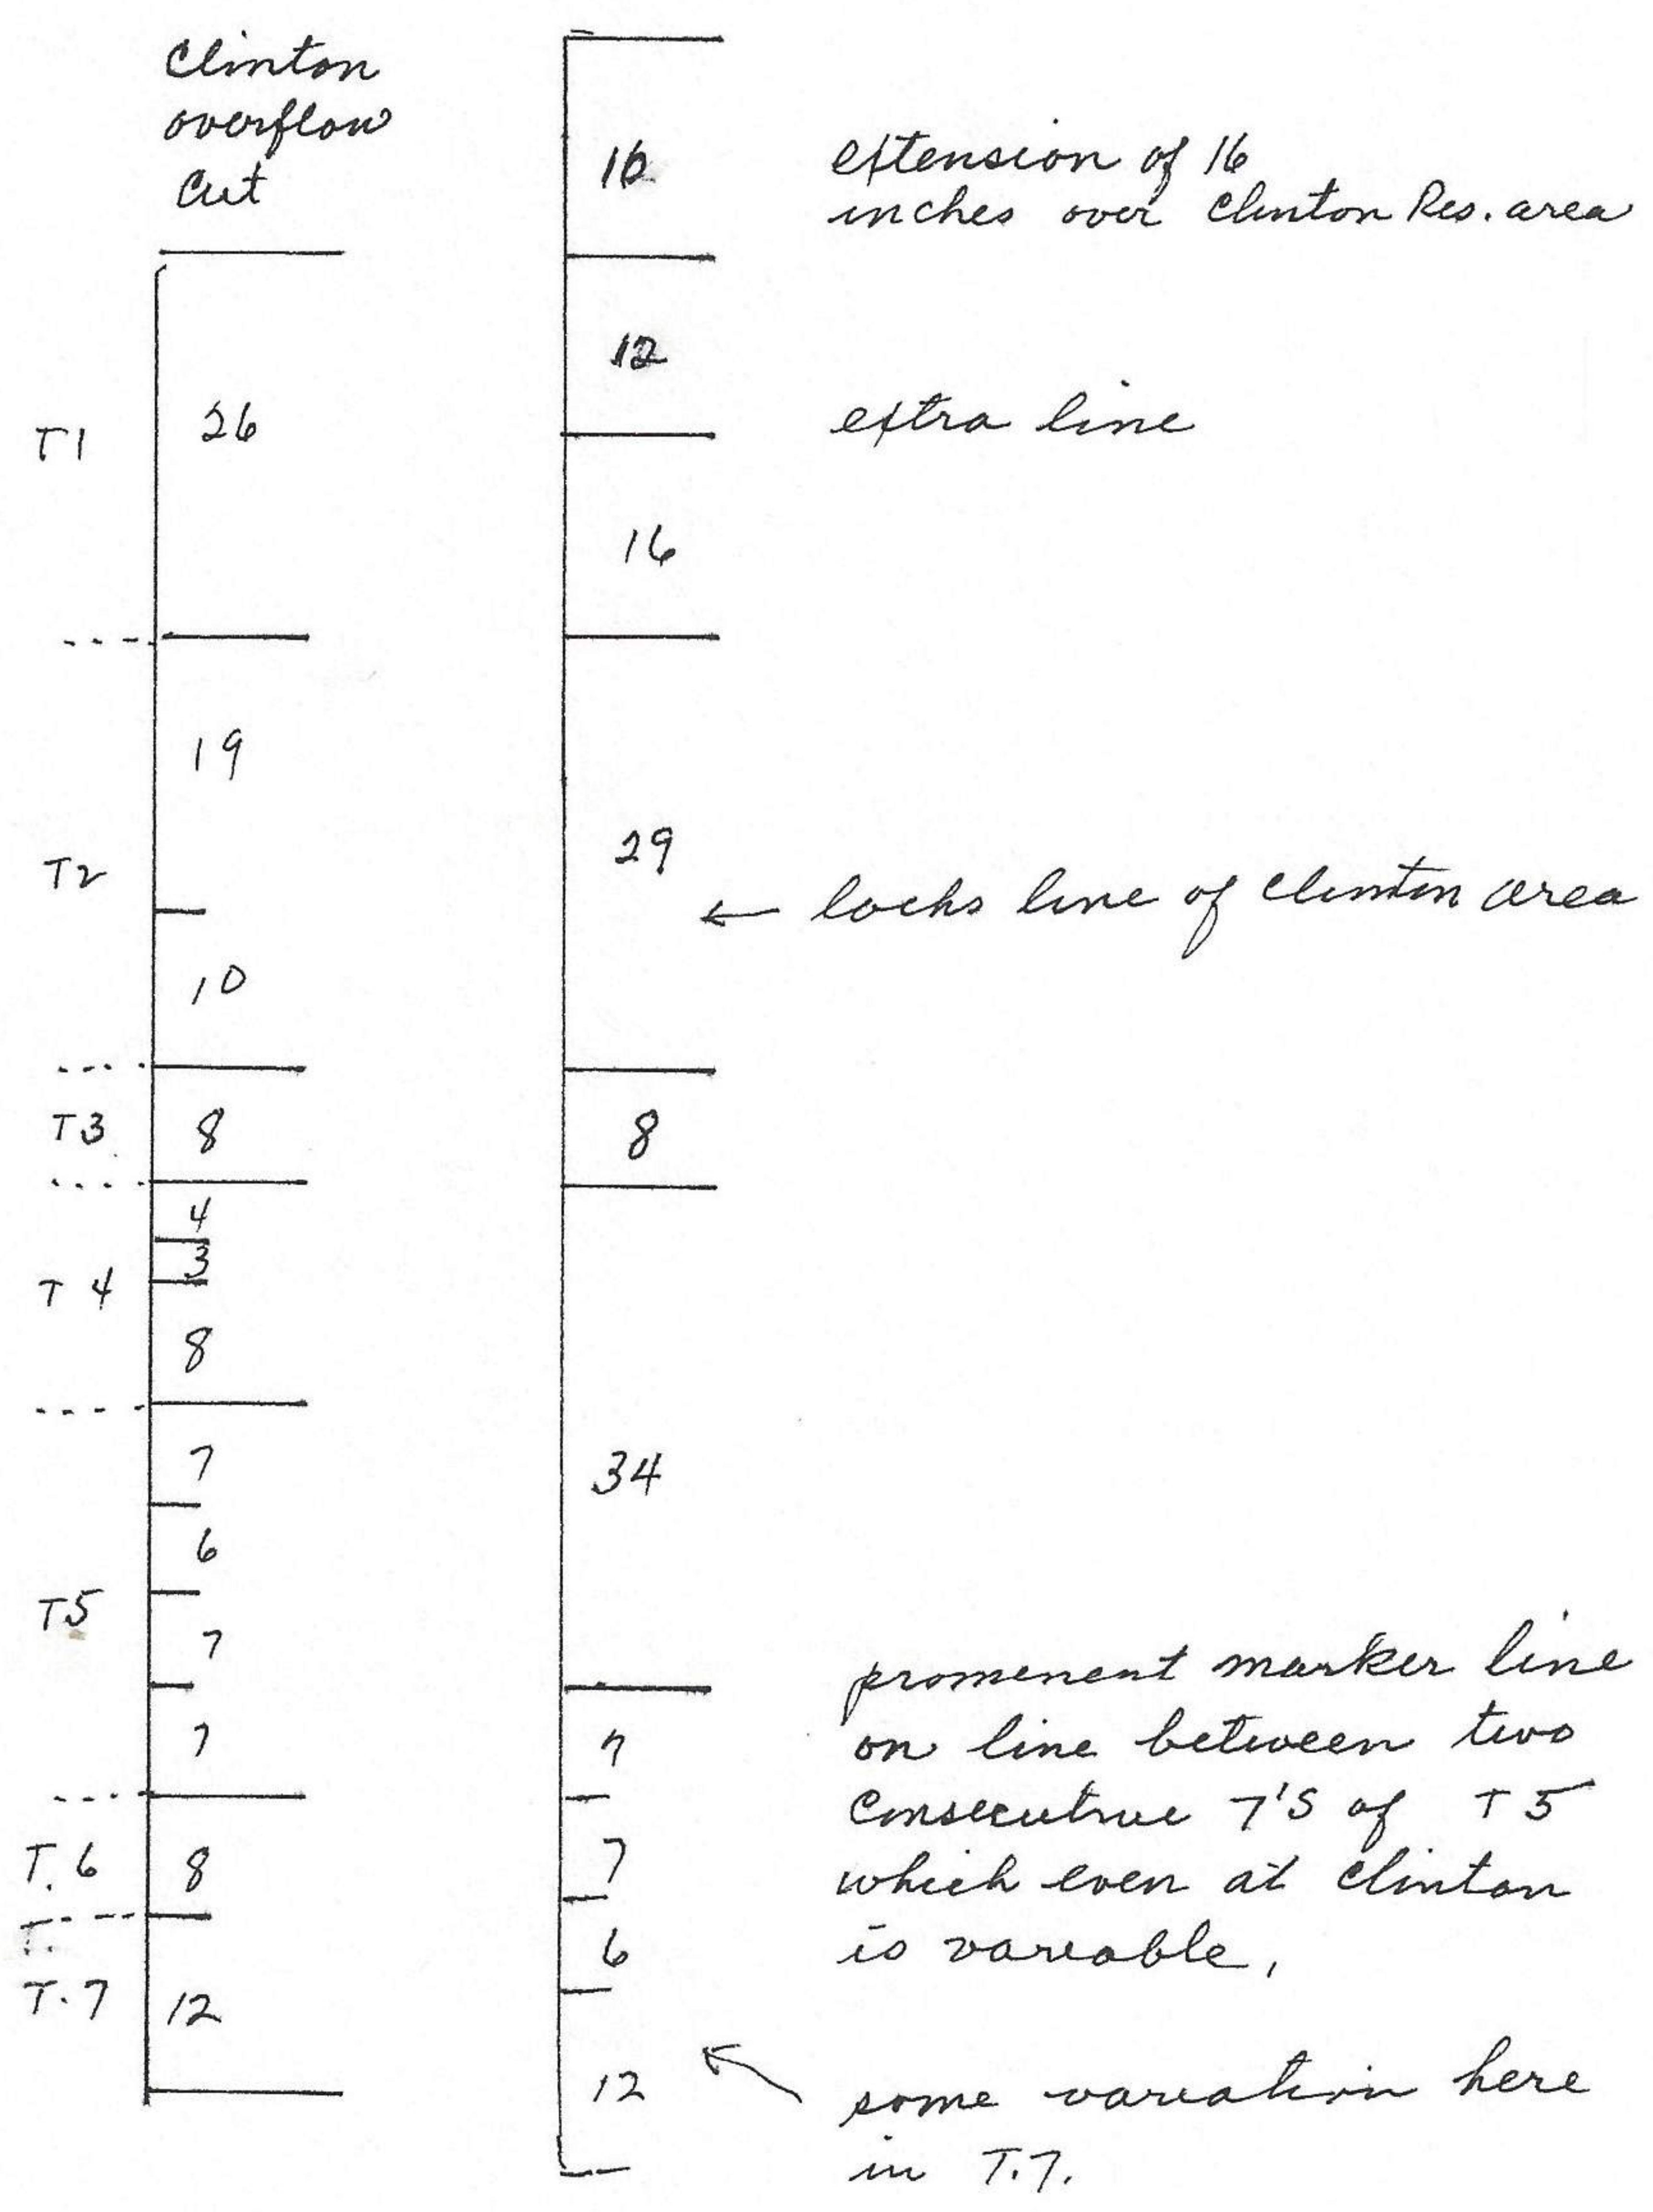 Clinton
overflow
Cut
T1
26
19
T2
10
T3
8
4
3
T 4
8
7
6
T5
7
7
T. 6
8
T.
T. 7
12
16
extension of 16
inches over Clinton Res. area
12
extra line
16
29
← lacks line of Clinton area
8
34
promenent marker line
7
on line between two
consecutive 7'S of T 5
7
which even at Clinton
6
is variable,
12
some variation here
in T.7.